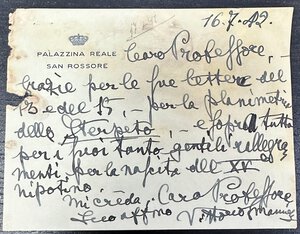 16.7.42.
PALAZZINA REALE
SAN ROSSORE
Caro Professore,
grazie per le sue lettere del
13 e del 15, - per la planimetria
dello Sterpeto, - e sopra tutto
per i suoi tanto gentili rallegra
menti per la nascita del XV°
nipotino.
Mi creda, Caro Professore
suo affmo Vittorio Emanuele